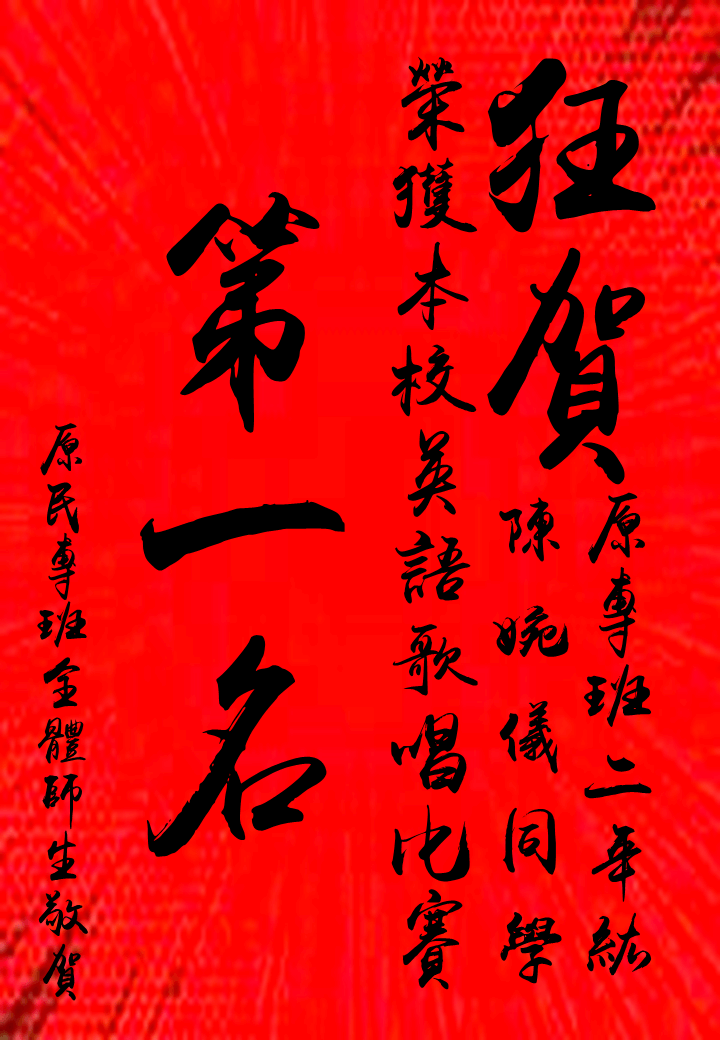 狂賀
原專班二年級
陳婉儀同學
榮獲本校英語歌唱比賽
第一名
原民專班全體師生敬賀